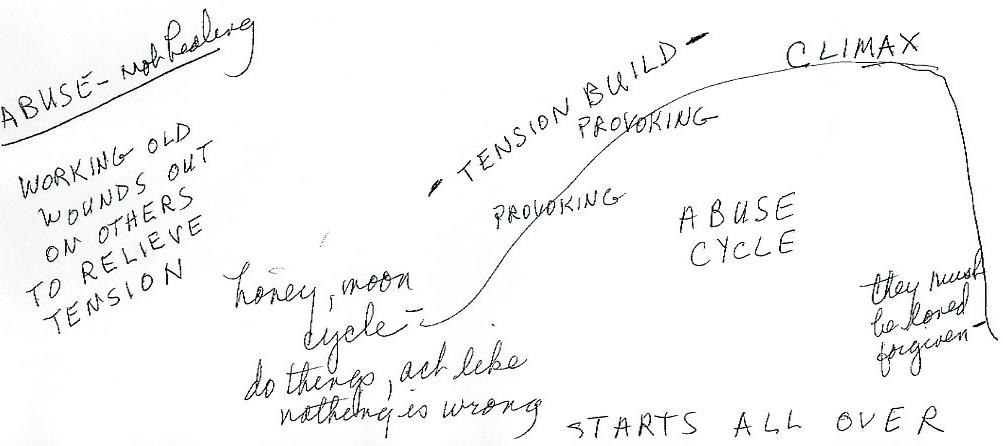 ABUSE - not healing
WORKING OLD
WOUNDS OUT
ON OTHERS
TO RELIEVE
TENSION
- TENSION BUILD -
CLIMAX
PROVOKING
PROVOKING
ABUSE
CYCLE
honey, moon
cycle -
do things, act like
nothing is wrong
they must
be loved
forgiven -
STARTS ALL OVER